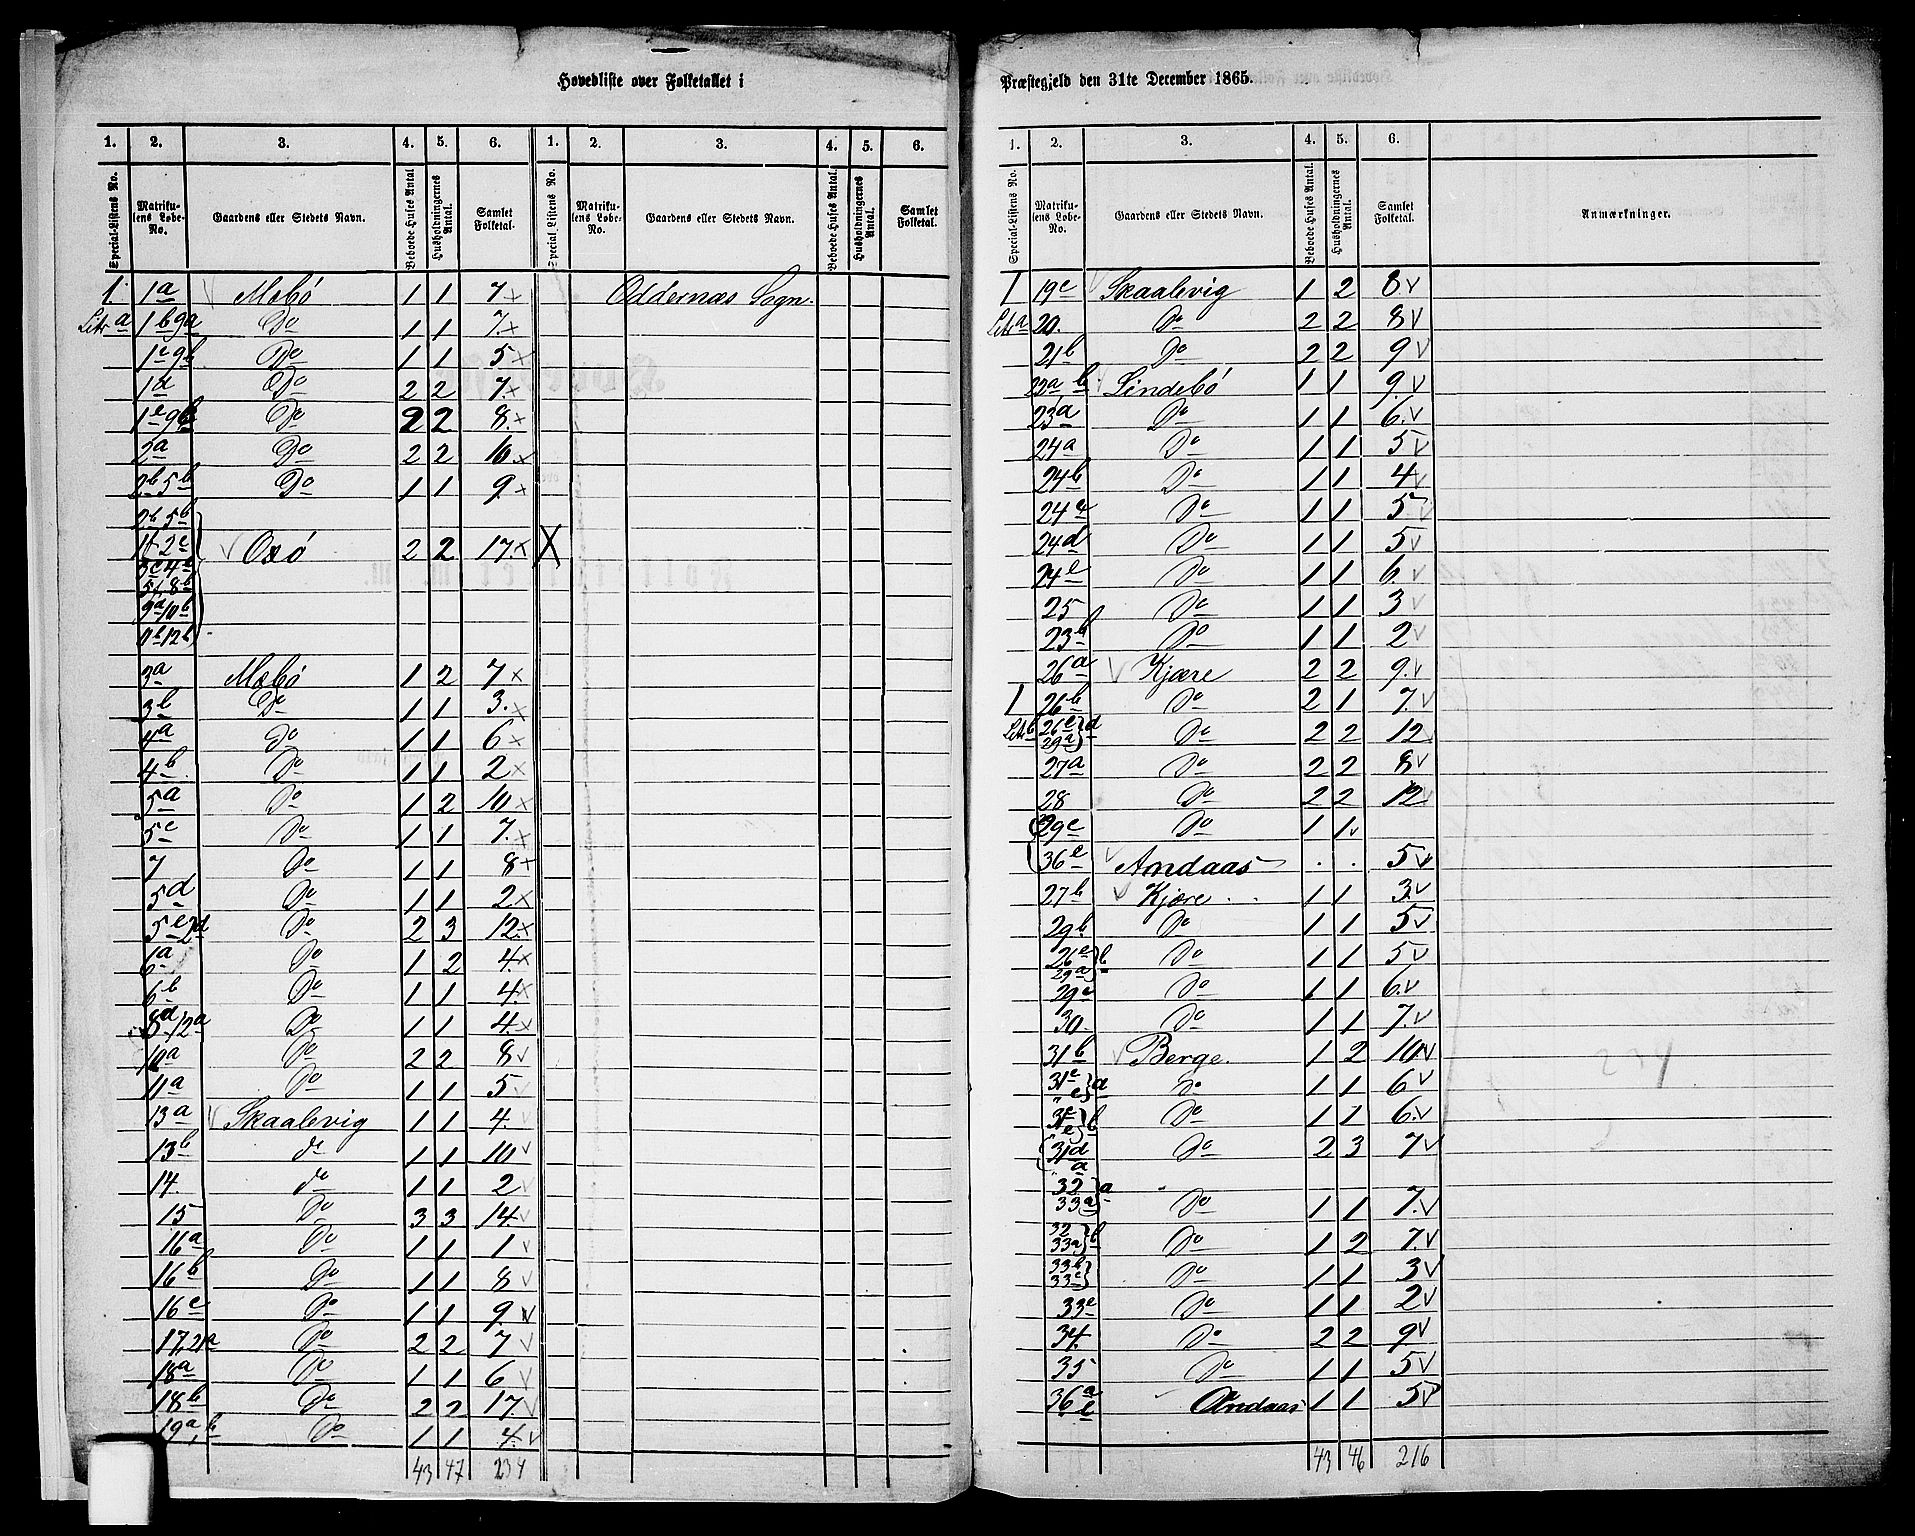 Hovedliste over Folketallet i
1. 2. 3. 4. 5. 6. 1. 2. 3. 4. 5. 6.
Special-Listens No. Matrikulens Løbe-No. Gaardens eller Stedets Navn. Beboede Huses Antal Husholdningernes Antal. Samlet Folketal. Special Listens No. Matrikulens Løbe-No. Gaardens eller Stedets Navn. Beboede Huses Antal. Husholdningernes Antal. Samlet Folketal.
1 1a Mebö 1 1 7 Oddernæs Sogn.
Litr a 1b 9a Do 1 1 7
1c 9b Do 1 1 5
1d Do 2 2 7
1e 9c Do 2 2 8
2a Do 2 2 10
2b 5b Do 1 1 9
2b 5b
1f 2c Oxö 2 2 17 X
3c 4c
5f 8b
9a 10b
11b 12b
3a Mebö 1 2 7
3b Do 1 1 3
4a Do 1 1 6
4b Do 1 1 2
5a Do 1 2 10
5c Do 1 1 7
7 Do 1 1 8
5d Do 1 1 2
5e 2d Do 2 3 12
6a Do 1 2 4
6b Do 1 1 4
8d 12a Do 1 1 4
10a Do 2 2 8
11a Do 1 1 5
13a Skaalevig 1 1 4
13b do 1 1 10
14. do 1 1 2
15 Do 3 3 14
16a Do 1 1 1
16b Do 1 1 8
16c Do 1 1 9
17, 21a Do 2 2 7
18a Do 1 1 6
18b Do 2 2 17
19a, b Do 1 1 4
43 47 234
Præstegjeld den 31te December 1865.
1. 2. 3. 4. 5. 6.
Special-Listens No. Matrikulens Løbe-No. Gaardens eller Stedets Navn. Beboede Huses Antal. Husholdningernes Antal. Samlet Folketal. Anmærkninger.
1 19c Skaalevig 1 2 8
Litr a 20. Do 2 2 8
21b Do 2 2 9
22a b Lindebö 1 1 9
23a Do 1 1 6
24a Do 1 1 5
24b Do 1 1 4
24c Do 1 1 5
24d Do 1 1 5
24e Do 1 1 6
25 Do 1 1 3
23b Do 1 1 2
26a Kjære 2 2 9
1 26b Do 2 1 7
Litr b 26c 29a } d Do 2 2 12
27a Do 2 2 8
28 Do 2 2 12
29c Do 1 1
36c Andaas . . 5
27b Kjære 1 1 3
29b Do 1 1 5
26c 29a } b Do 1 1 5
29c Do 1 1 6
30. Do 1 1 7
31b Berge. 1 2 10
31c e } a Do 1 1 6
31c e } b Do 1 1 6
31d a Do 2 3 7
32 33a } a Do 1 1 7
32 33a } b Do 1 2 7
33b 33c } Do 1 1 3
33e Do 1 1 2
34. Do 2 2 9
35 Do 1 1 5
36a e Andaas 1 1 5
43 46 216